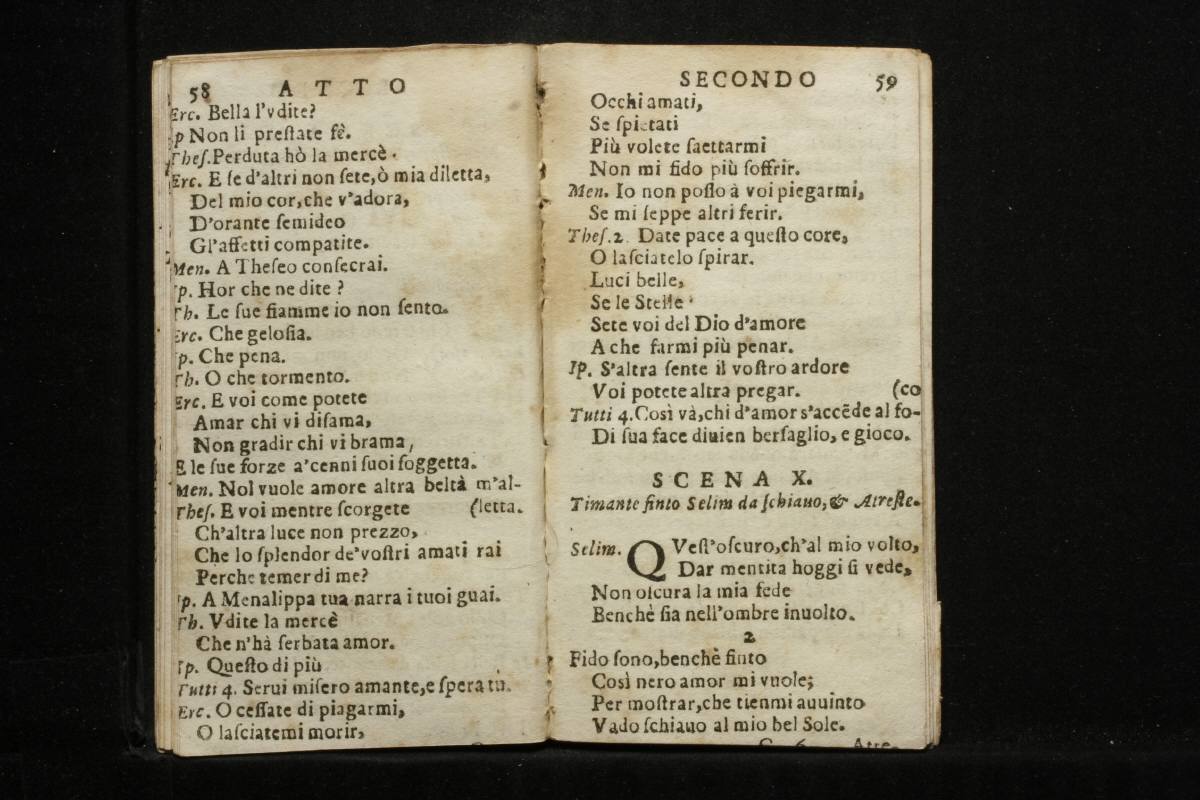 58 ATTO
Erc. Bella l'vdite?
Ip Non li preſtate fè.
Theſ. Perduta hò la mercè.
Erc. E ſe d'altri non ſete, ò mia diletta,
Del mio cor, che v'adora,
D'orante ſemideo
Gl'affetti compatite.
Men. A Theſeo conſecrai.
Ip. Hor che ne dite?
Th. Le ſue fiamme io non ſento.
Erc. Che geloſia.
Ip. Che pena.
Th. O che tormento.
Erc. E voi come potete
Amar chi vi diſama,
Non gradir chi vi brama,
E le ſue forze a'cenni ſuoi ſoggetta.
Men. Nol vuole amore altra beltà m'al-
Theſ. E voi mentre ſcorgete (letta.
Ch'altra luce non prezzo,
Che lo ſplendor de'voſtri amati rai
Perche temer di me?
Ip. A Menalippa tua narra i tuoi guai.
Th. Vdite la mercè
Che n'hà ſerbata amor.
Ip. Queſto di più
Tutti 4. Serui miſero amante, e ſpera tu.
Erc. O ceſſate di piagarmi,
O laſciatemi morir,
SECONDO 59
Occhi amati,
Se ſpietati
Più volete ſaettarmi
Non mi fido più ſoffrir.
Men. Io non poſſo à voi piegarmi,
Se mi ſeppe altri ferir.
Theſ. 2. Date pace a queſto core,
O laſciatelo ſpirar.
Luci belle,
Se le Stelle
Sete voi del Dio d'amore
A che farmi più penar.
Ip. S'altra ſente il voſtro ardore
Voi potete altra pregar. (co
Tutti 4. Così và, chi d'amor s'accẽde al fo-
Di ſua face diuien berſaglio, e gioco.
SCENA X.
Timante finto Selim da ſchiauo, & Atreſte.
Selim. QVeſt'oſcuro, ch'al mio volto,
Dar mentita hoggi ſi vede,
Non oſcura la mia fede
Benchè ſia nell'ombre inuolto.
2
Fido ſono, benchè finto
Così nero amor mi vuole;
Per moſtrar, che tienmi auuinto
Vado ſchiauo al mio bel Sole.
C 6 Atre-